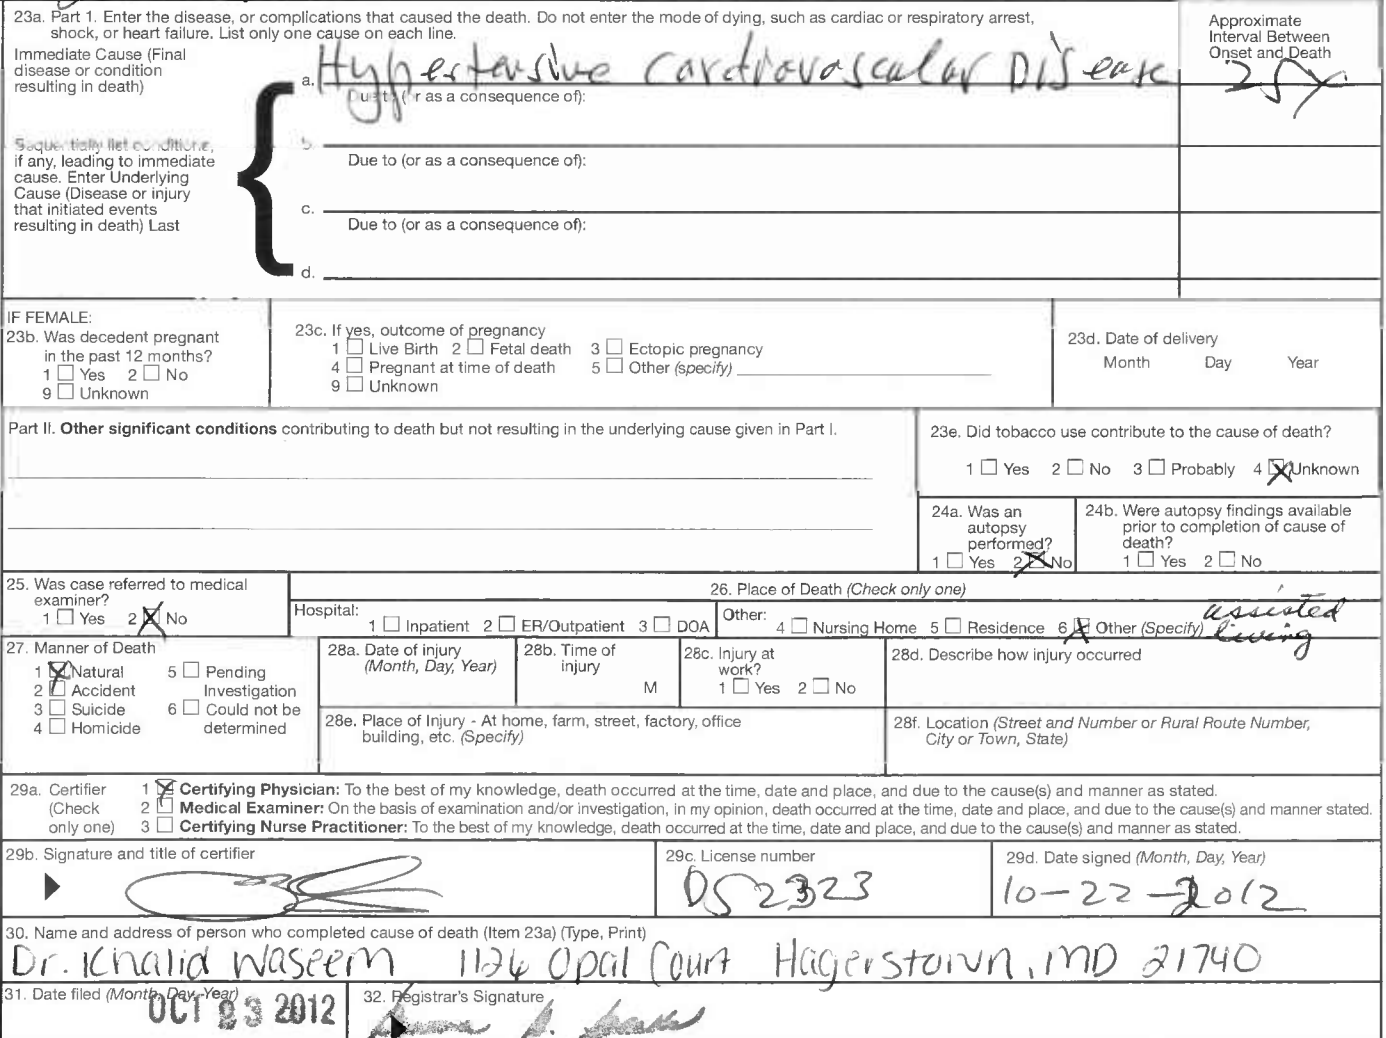 23a. Part 1. Enter the disease, or complications that caused the death. Do not enter the mode of dying, such as cardiac or respiratory arrest,
shock, or heart failure. List only one cause on each line.
Approximate
Interval Between
Onset and Death
Immediate Cause (Final
disease or condition
resulting in death)
a. Hypertensive Cardiovascular Disease
Due to (or as a consequence of):
Sequentially list conditions,
if any, leading to immediate
cause. Enter Underlying
Cause (Disease or injury
that initiated events
resulting in death) Last
b.
Due to (or as a consequence of):
c.
Due to (or as a consequence of):
d.
IF FEMALE:
23b. Was decedent pregnant
in the past 12 months?
1 ☐ Yes 2 ☐ No
9 ☐ Unknown
23c. If yes, outcome of pregnancy
1 ☐ Live Birth 2 ☐ Fetal death 3 ☐ Ectopic pregnancy
4 ☐ Pregnant at time of death 5 ☐ Other (specify)
9 ☐ Unknown
23d. Date of delivery
Month Day Year
Part II. Other significant conditions contributing to death but not resulting in the underlying cause given in Part I.
23e. Did tobacco use contribute to the cause of death?
1 ☐ Yes 2 ☐ No 3 ☐ Probably 4 ☒ Unknown
24a. Was an
autopsy
performed?
1 ☐ Yes 2 ☒ No
24b. Were autopsy findings available
prior to completion of cause of
death?
1 ☐ Yes 2 ☐ No
25. Was case referred to medical
examiner?
1 ☐ Yes 2 ☒ No
26. Place of Death (Check only one)
Hospital:
1 ☐ Inpatient 2 ☐ ER/Outpatient 3 ☐ DOA
Other:
4 ☐ Nursing Home 5 ☐ Residence 6 ☒ Other (Specify) assisted
living
27. Manner of Death
1 ☒ Natural 5 ☐ Pending
2 ☐ Accident Investigation
3 ☐ Suicide 6 ☐ Could not be
4 ☐ Homicide determined
28a. Date of injury
(Month, Day, Year)
28b. Time of
injury
M
28c. Injury at
work?
1 ☐ Yes 2 ☐ No
28d. Describe how injury occurred
28e. Place of Injury - At home, farm, street, factory, office
building, etc. (Specify)
28f. Location (Street and Number or Rural Route Number,
City or Town, State)
29a. Certifier
(Check
only one)
1 ☒ Certifying Physician: To the best of my knowledge, death occurred at the time, date and place, and due to the cause(s) and manner as stated.
2 ☐ Medical Examiner: On the basis of examination and/or investigation, in my opinion, death occurred at the time, date and place, and due to the cause(s) and manner stated.
3 ☐ Certifying Nurse Practitioner: To the best of my knowledge, death occurred at the time, date and place, and due to the cause(s) and manner as stated.
29b. Signature and title of certifier
29c. License number
D52323
29d. Date signed (Month, Day, Year)
10-22-2012
30. Name and address of person who completed cause of death (Item 23a) (Type, Print)
Dr. Khalid Waseem 1126 Opal Court Hagerstown, MD 21740
31. Date filed (Month, Day, Year)
OCT 23 2012
32. Registrar's Signature